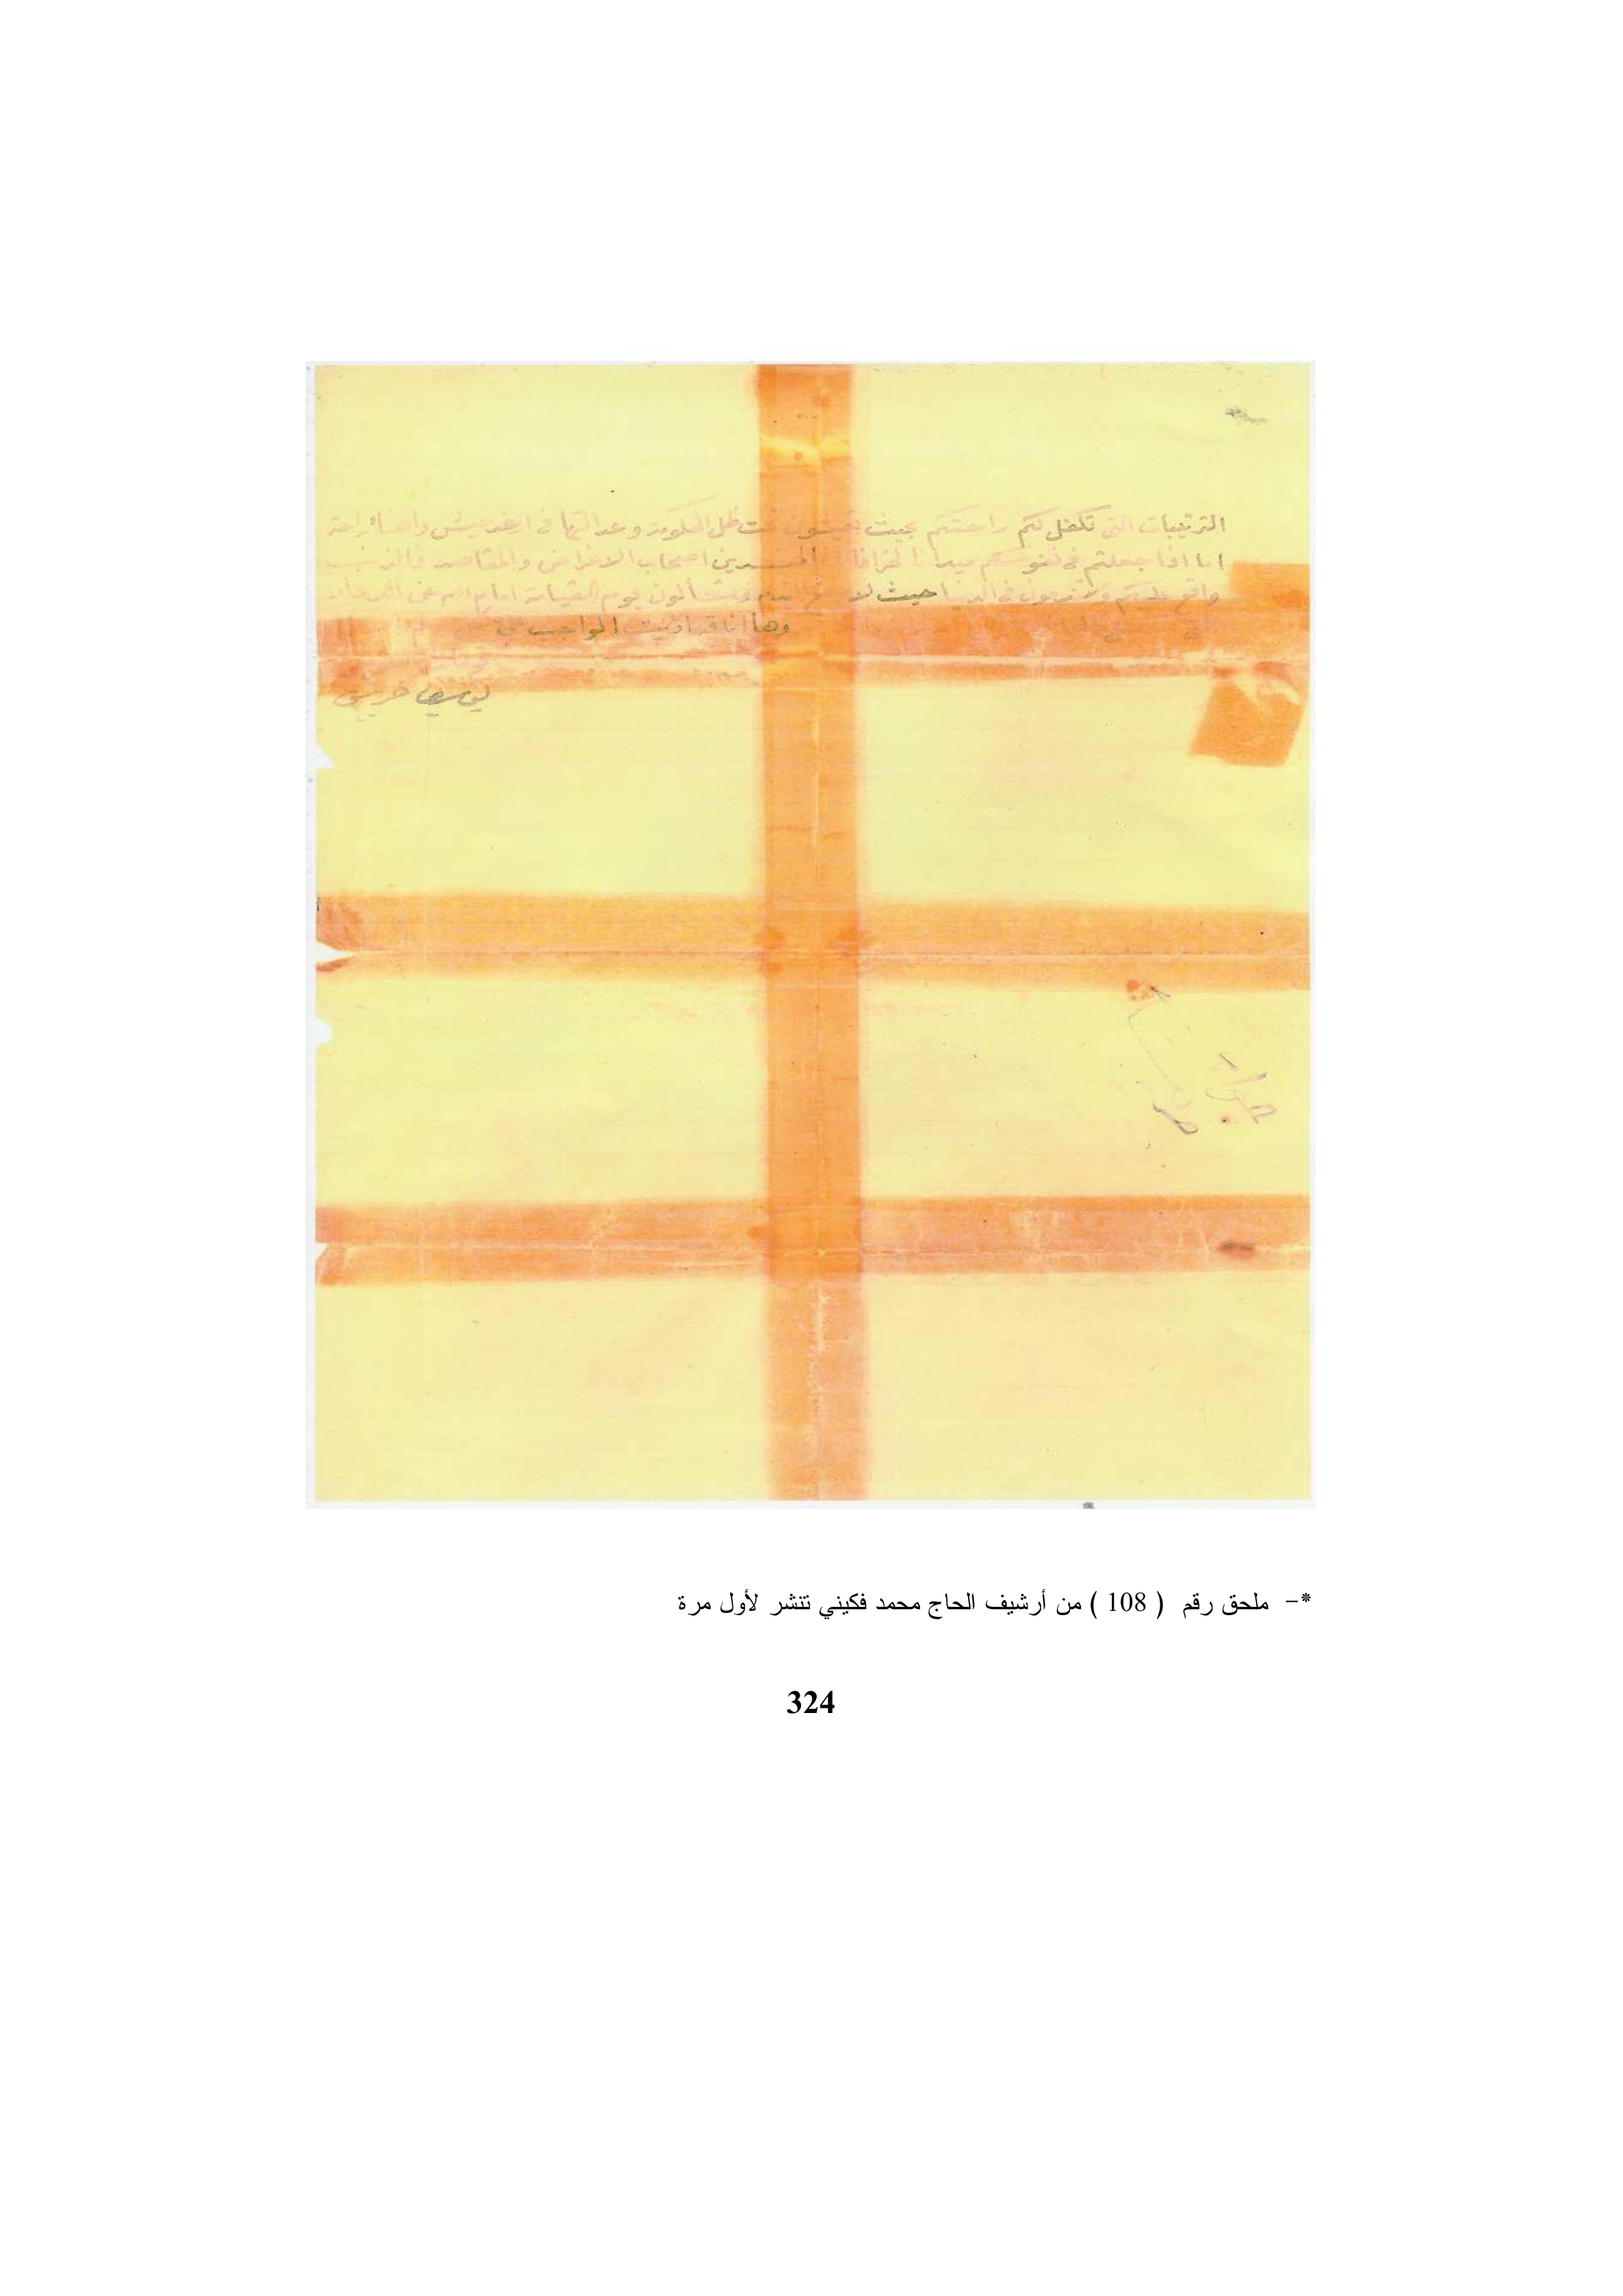 الترتيبات التي تكفل لكم راحتكم بحيث تعيشون تحت ظل الحكومة وعدالتها في ارغد عيش واهنأ راحة
اما اذا جعلتم في نفوسكم ميدانا لخرافات المفسدين اصحاب الاغراض والمقاصد فالذنب
واقع عليكم وتندمون في الدنيا حيث لا ينفع الندم وتسألون يوم القيامة امام الله عن
وها انا قد اديت الواجب
يوسف خربيش
جواب
*- ملحق رقم ( 108 ) من أرشيف الحاج محمد فكيني تنشر لأول مرة
324